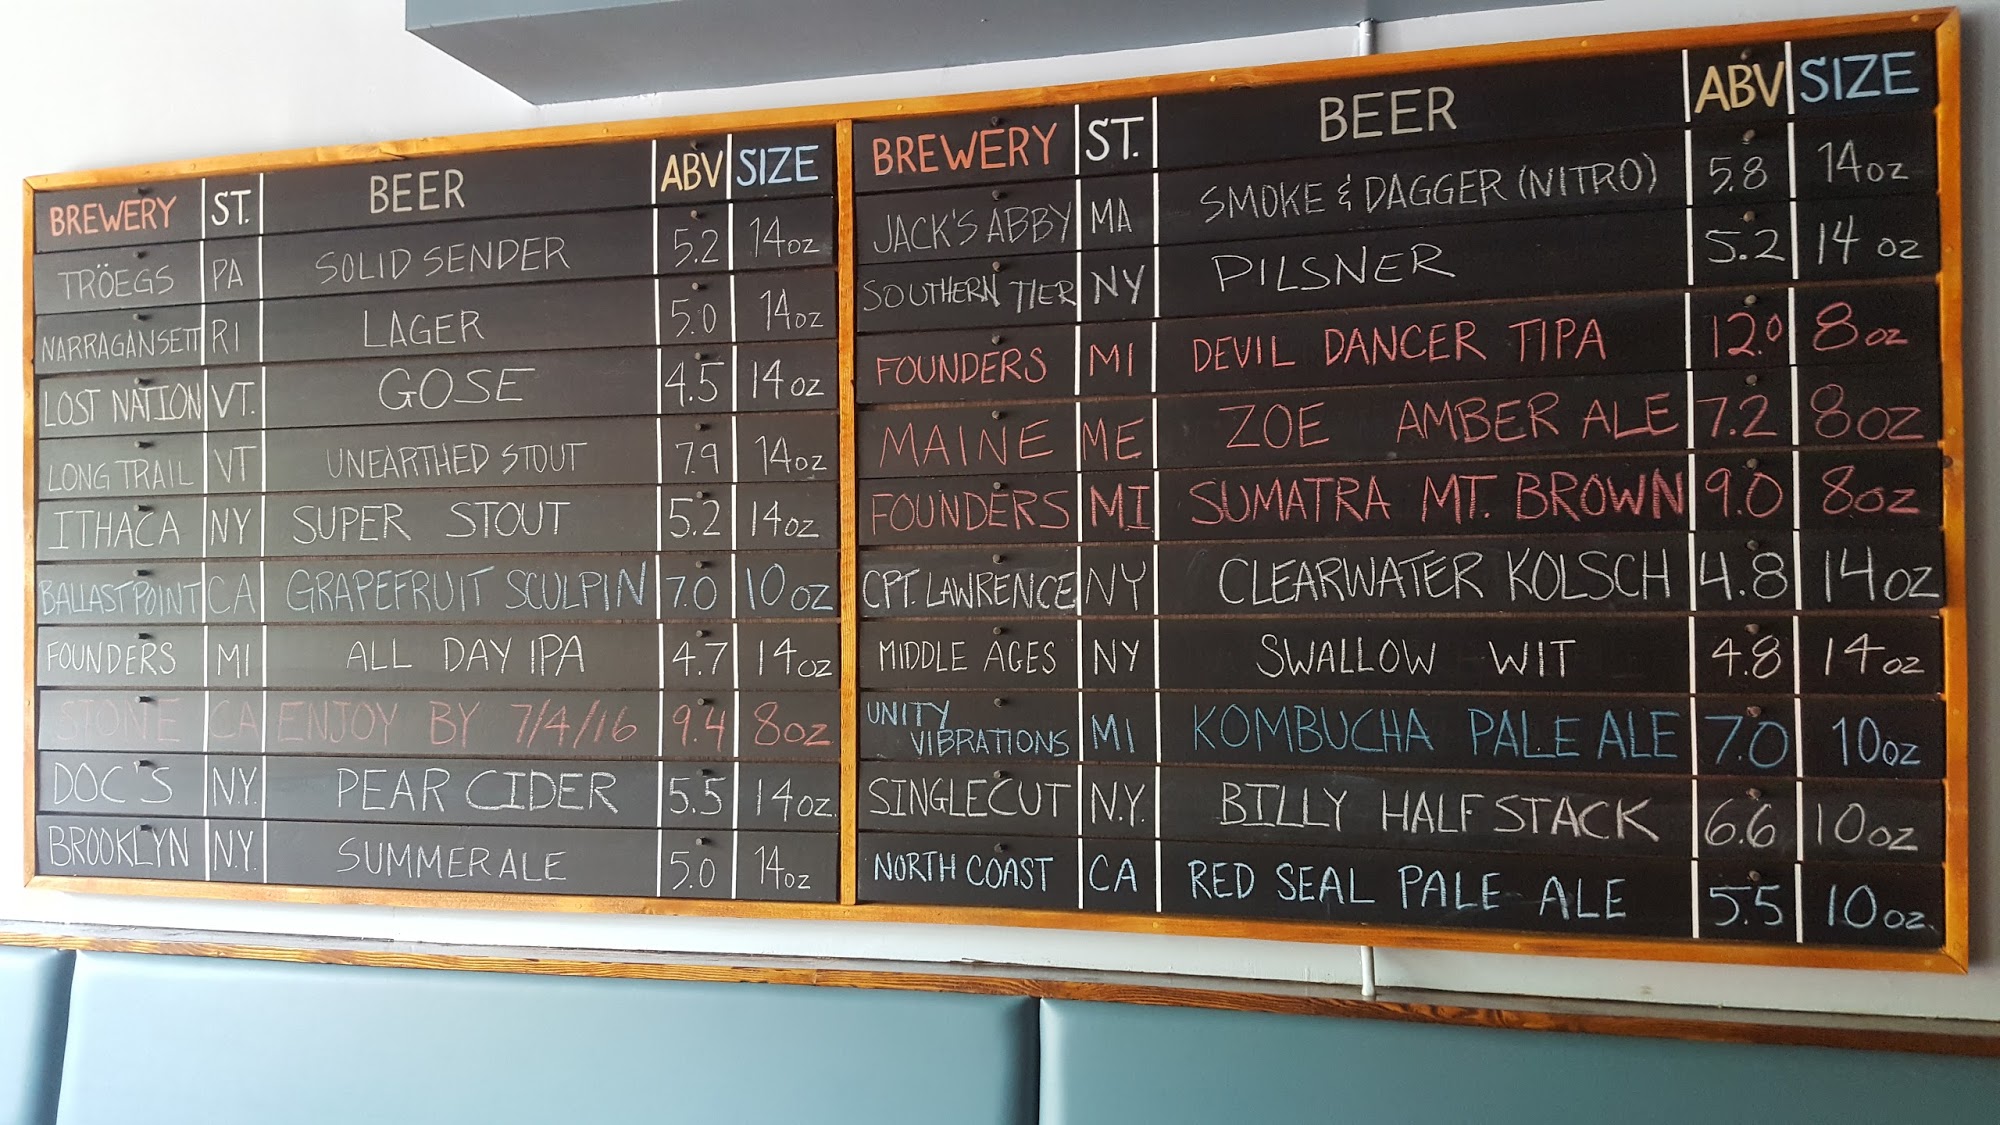 BREWERY ST. BEER ABV SIZE
TRÖEGS PA SOLID SENDER 5.2 14oz
NARRAGANSETT RI LAGER 5.0 14oz
LOST NATION VT. GOSE 4.5 14oz
LONG TRAIL VT UNEARTHED STOUT 7.9 14oz
ITHACA NY SUPER STOUT 5.2 14oz
BALLAST POINT CA GRAPEFRUIT SCULPIN 7.0 10oz
FOUNDERS MI ALL DAY IPA 4.7 14oz
STONE CA ENJOY BY 7/4/16 9.4 8oz
DOC'S N.Y. PEAR CIDER 5.5 14oz.
BROOKLYN N.Y. SUMMER ALE 5.0 14oz
BREWERY ST. BEER ABV SIZE
JACK'S ABBY MA SMOKE & DAGGER (NITRO) 5.8 14oz
SOUTHERN TIER NY PILSNER 5.2 14 oz
FOUNDERS MI DEVIL DANCER TIPA 12.0 8oz
MAINE ME ZOE AMBER ALE 7.2 8oz
FOUNDERS MI SUMATRA MT. BROWN 9.0 8oz
CPT. LAWRENCE NY CLEARWATER KOLSCH 4.8 14oz
MIDDLE AGES NY SWALLOW WIT 4.8 14oz
UNITY
VIBRATIONS MI KOMBUCHA PALE ALE 7.0 10oz
SINGLECUT N.Y. BILLY HALF STACK 6.6 10oz
NORTH COAST CA RED SEAL PALE ALE 5.5 10oz.